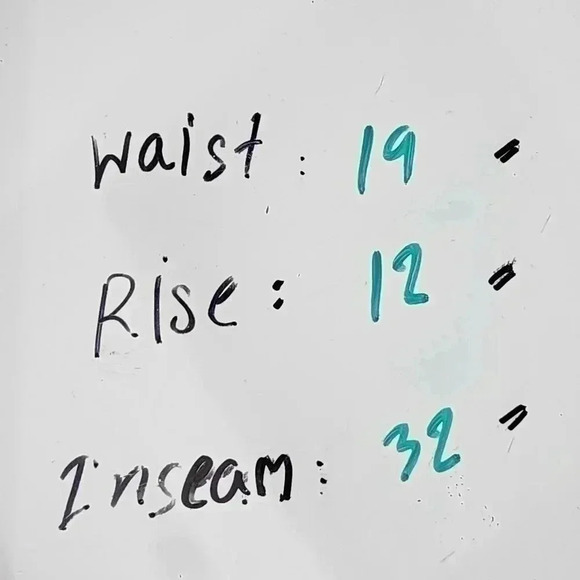 Waist : 19 "
Rise : 12 "
Inseam : 32 "